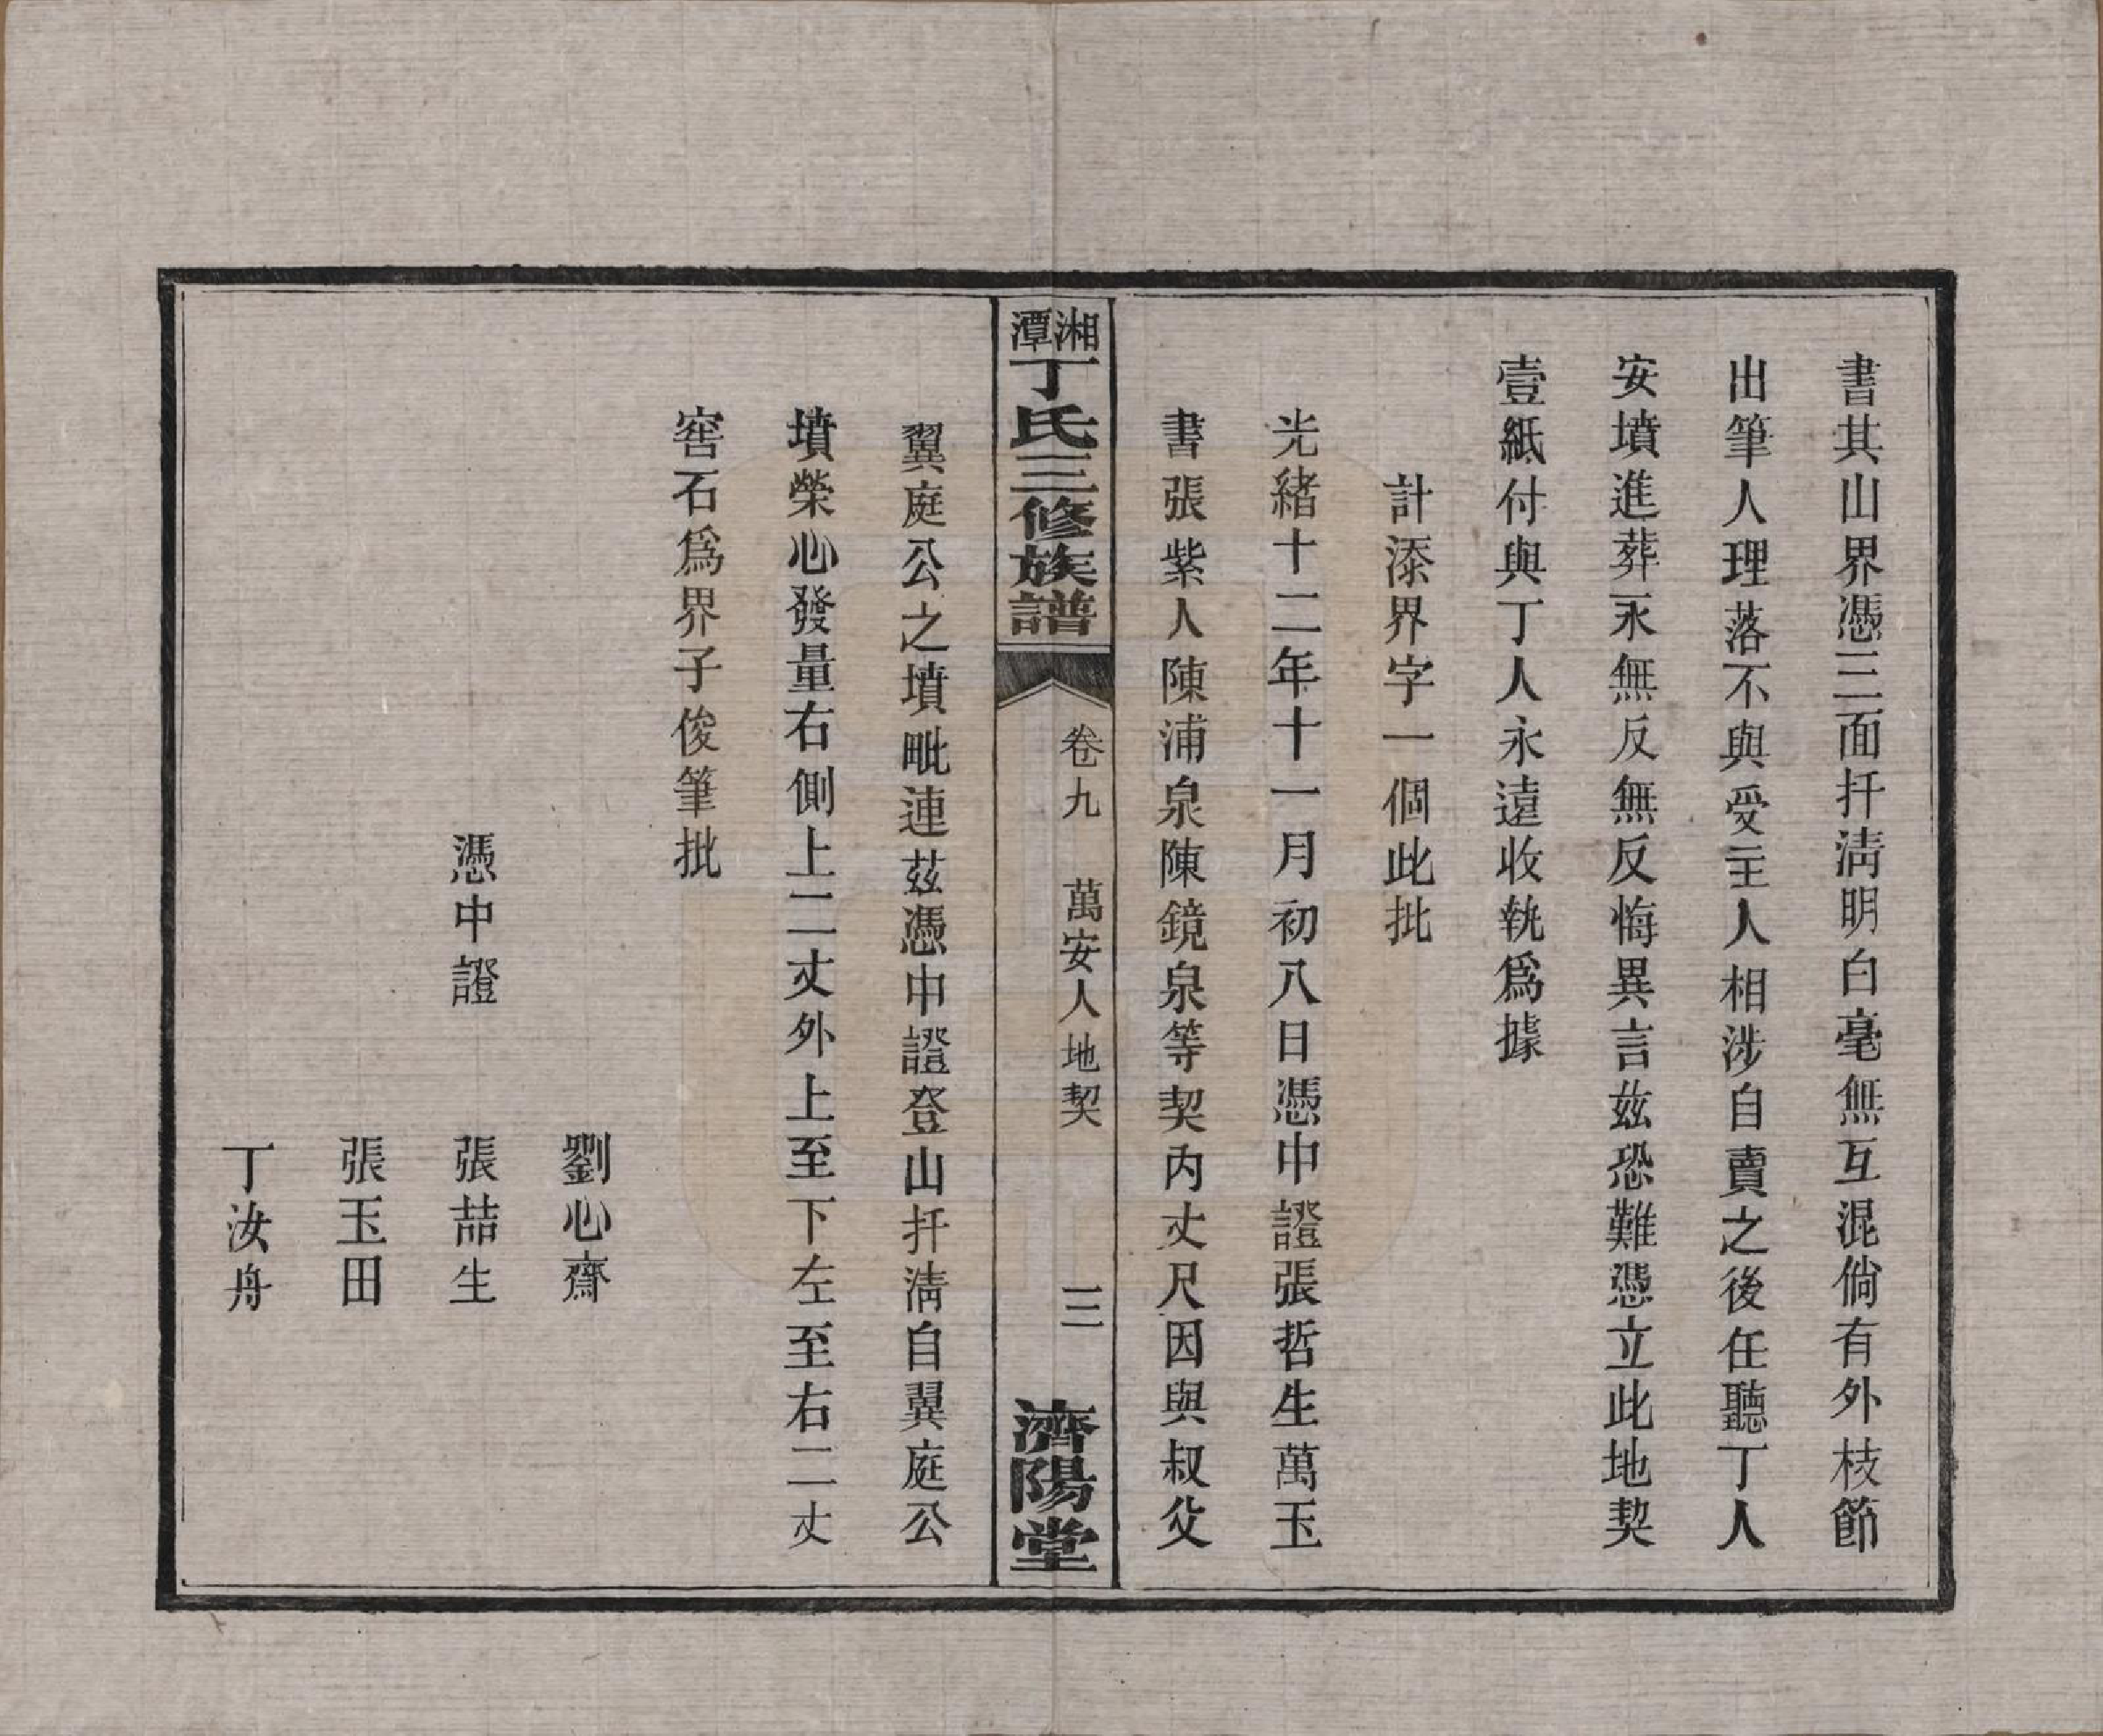 書其山界憑三面扦淸明白毫無互混倘有外枝節
出筆人理落不與受主人相涉自賣之後任聽丁人
安墳進葬永無反無反悔異言兹恐難憑立此地契
壹紙付與丁人永遠收執爲據
計添界字一個此批
光緒十二年十一月初八日憑中證張哲生萬玉
書張紫人陳浦泉陳鏡泉等契內丈尺因與叔父
湘潭丁氏三修族譜
卷九 萬安人地契 三
濟陽堂
翼庭公之墳毗連茲憑中證登山扦淸自翼庭公
墳榮心發量右側上二丈外上至下左至右二丈
窖石爲界子俊筆批
劉心齋
憑中證 張喆生
張玉田
丁汝舟